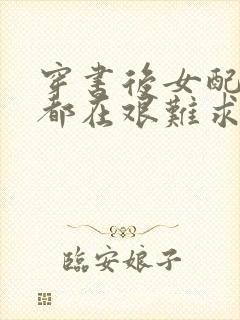 穿書後女配
都在艰難求
臨安娘子